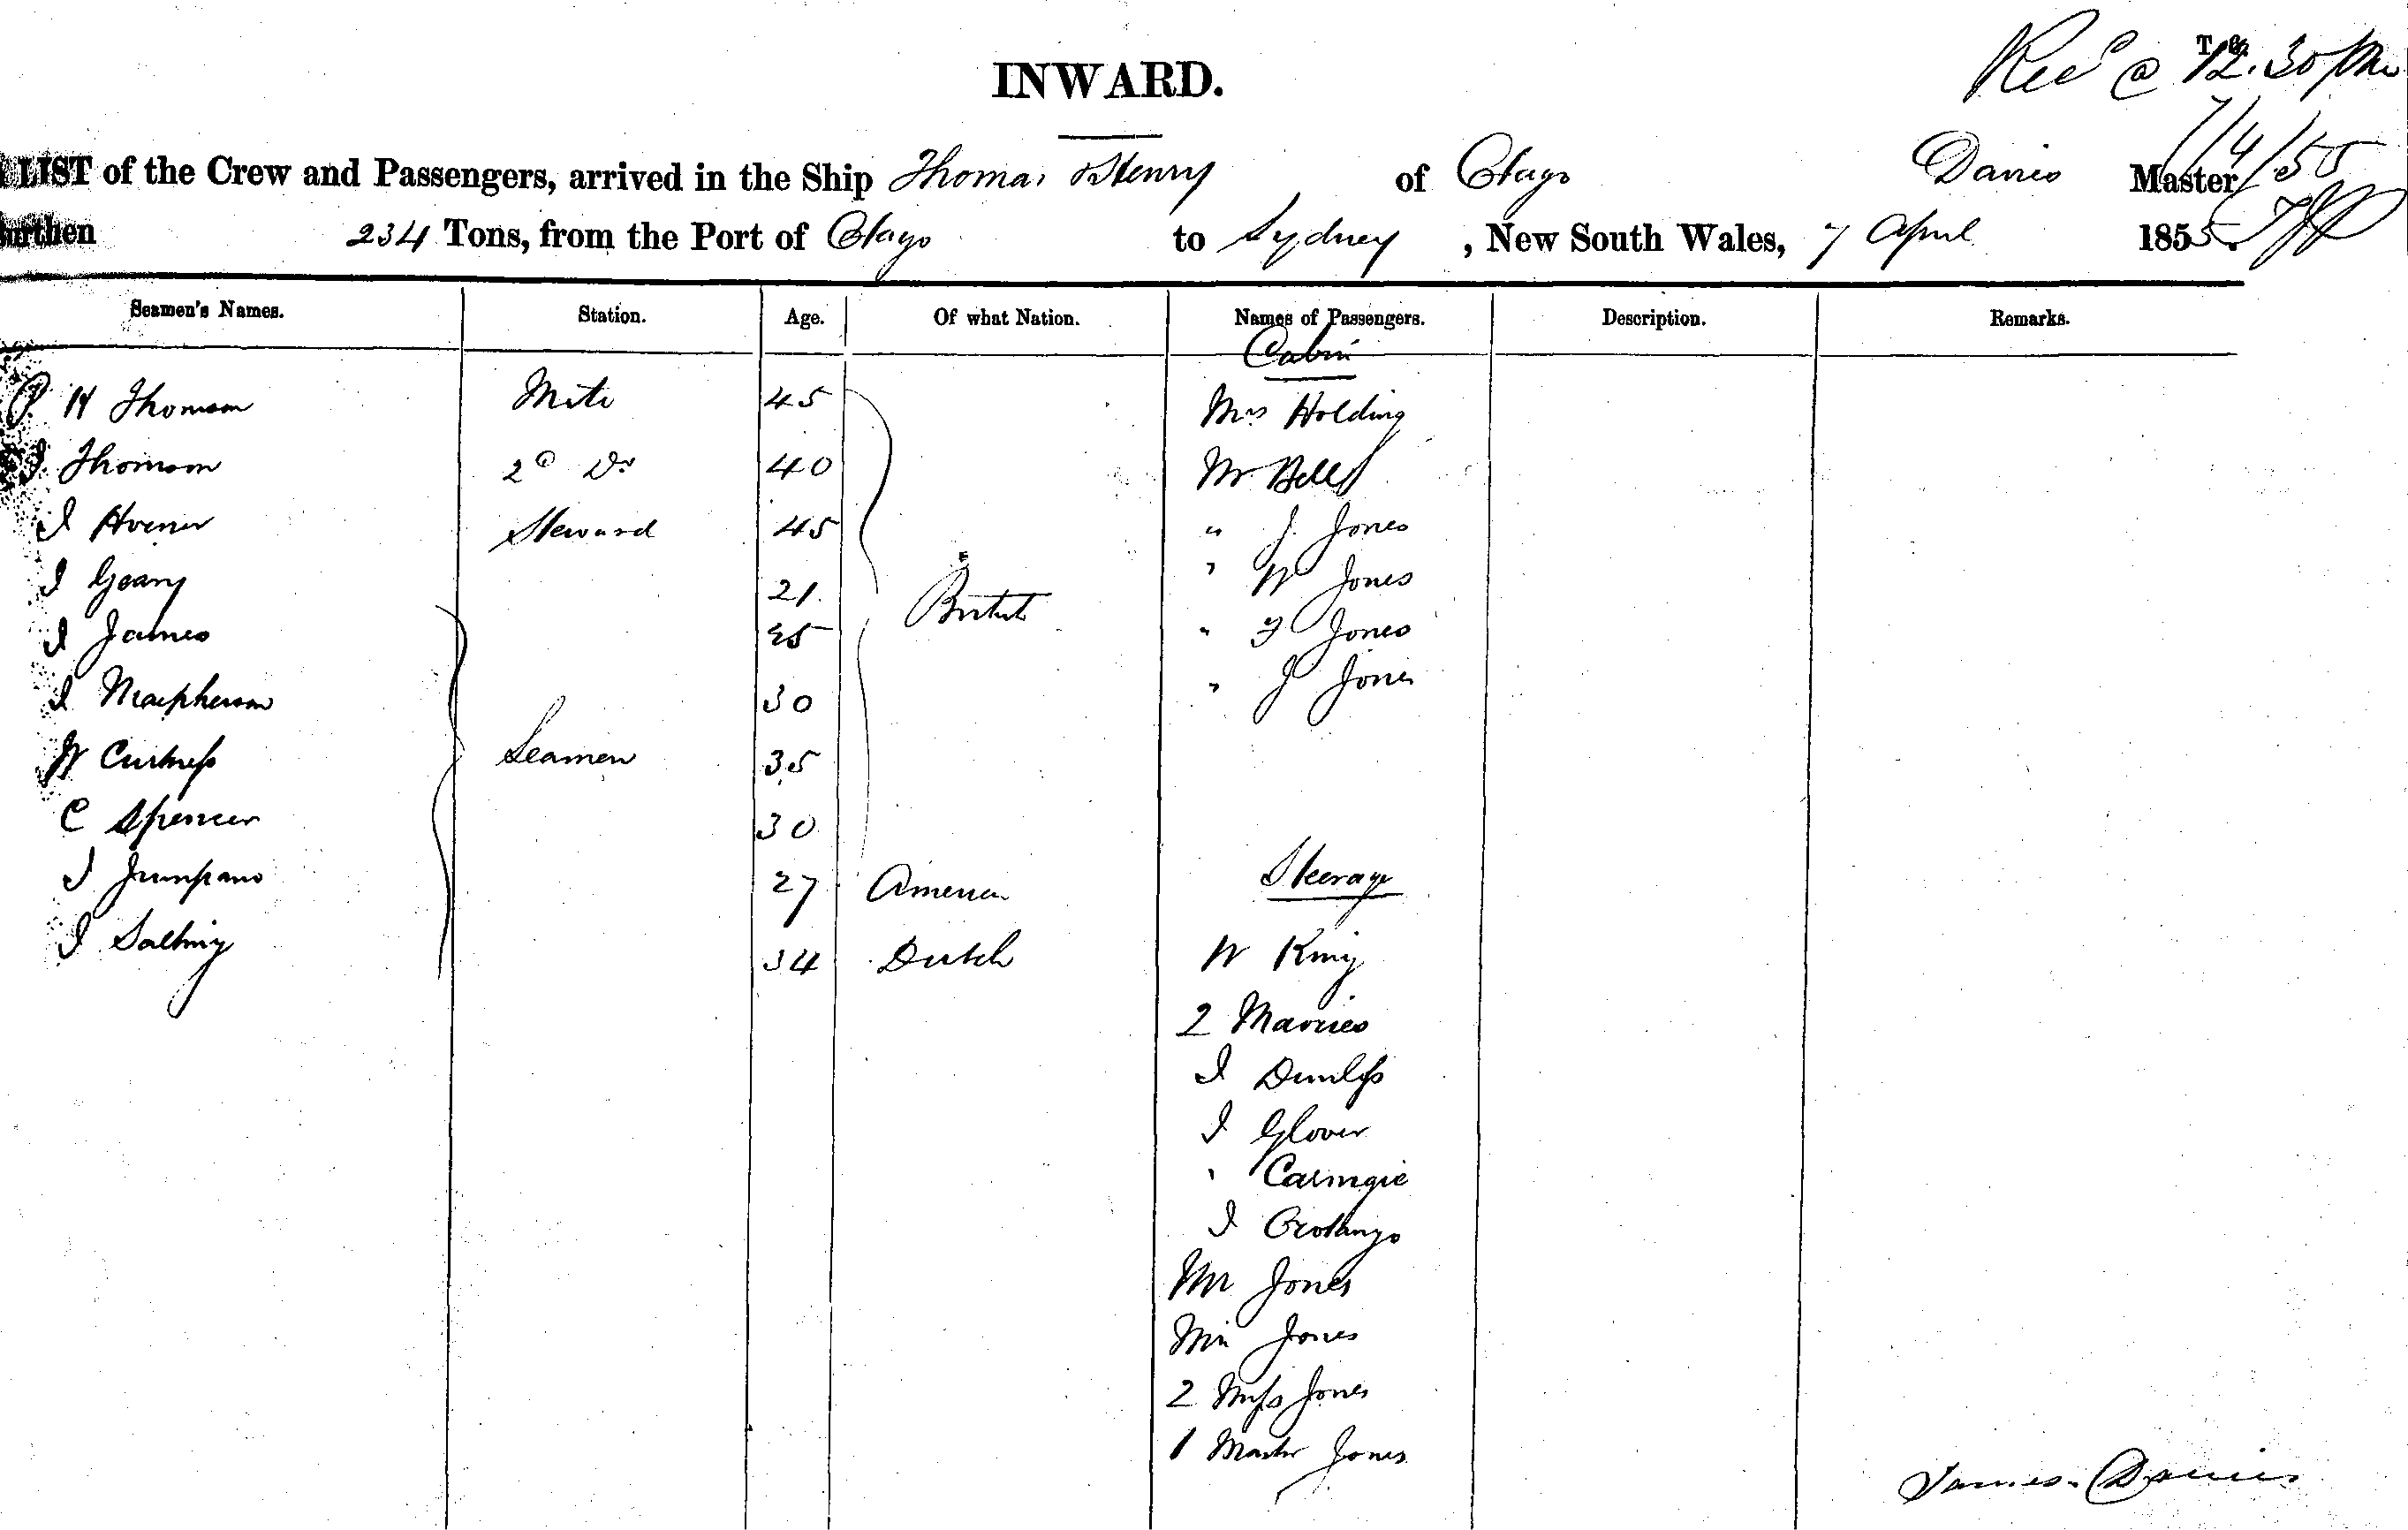 INWARD.
Recd @ 12.30 pm
7/4/55
LIST of the Crew and Passengers, arrived in the Ship Thomas & Henry of Otago Davies Master
Burthen 234 Tons, from the Port of Otago to Sydney, New South Wales, 7 April 1855.
Seamen's Names. Station. Age. Of what Nation. Names of Passengers. Description. Remarks.
Cabin
P. H Thomson Mate 45 Mrs Holding
J. Thomson 2d Do 40 Mr Bell
J Horner Steward 45 " J. Jones
J Geary 21 British " W Jones
J James 25 " F Jones
J Macpherson 30 " J Jones
W Curtness Seamen 35
C Spencer 30
J 27 America Steerage
J 34 Dutch W King
2 Marines
J Dunlop
J Glover
" Carnegie
J
Mr Jones
Mrs Jones
2 Miss Jones
1 Master Jones
James Davies